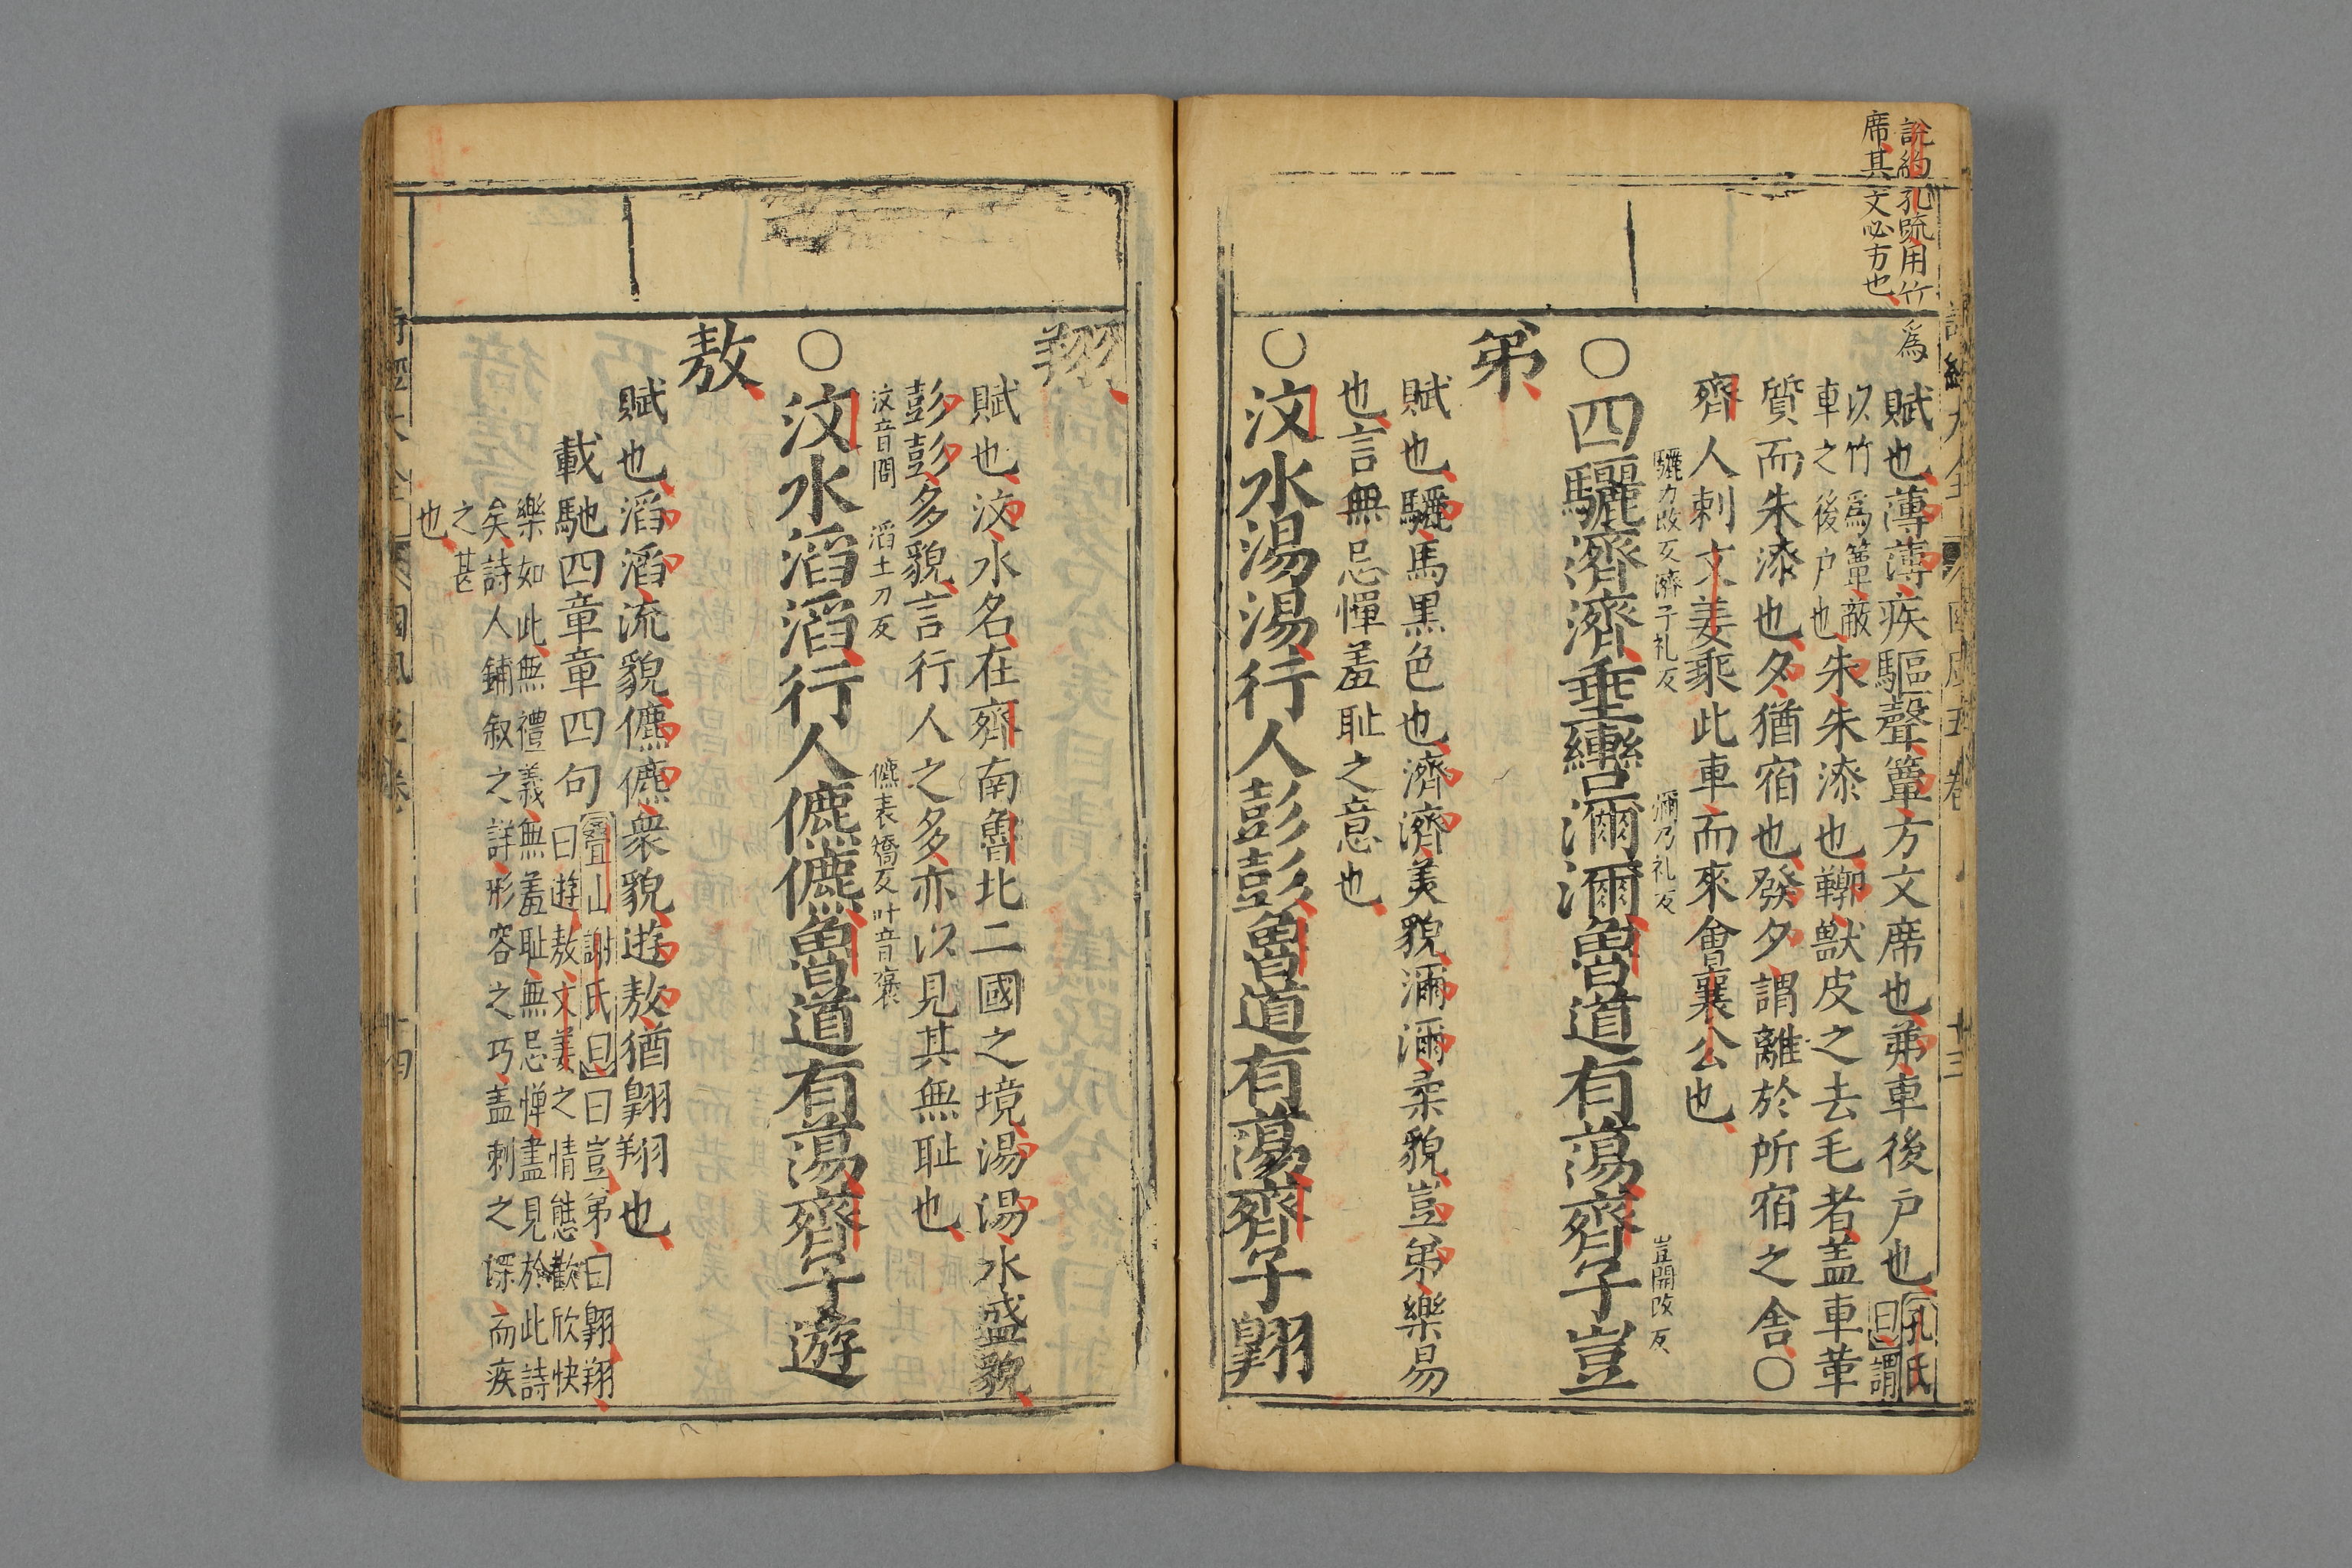 說約孔䟽用竹為
席其文必方也
賦也薄薄疾驅聲簟方文席也茀車後户也孔氏曰謂
以竹為簟蔽
車之後户也朱朱漆也鞹獸皮之去毛者盖車革
質而朱漆也夕猶宿也發夕謂離於所宿之舎○
齊人刺文姜乘此車而來會襄公也
驪力改反濟子礼反 濔乃礼反 豈開改反
○四驪濟濟垂轡濔濔魯道有蕩齊子豈
弟
賦也驪馬黒色也濟濟美貌濔濔柔貌豈弟樂易
也言無忌憚羞耻之意也
○汶水湯湯行人彭彭魯道有蕩齊子翺
翔
賦也汶水名在齊南魯北二國之境湯湯水盛貌
彭彭多貌言行人之多亦以見其無耻也
汶音問 滔土刀反 儦表矯反叶音褒
○汶水滔滔行人儦儦魯道有蕩齊子遊
敖
賦也滔滔流貌儦儦衆貌遊敖猶翺翔也
載馳四章章四句疊山謝氏曰曰豈弟曰翺翔
曰遊敖文姜之情態歡欣快
樂如此無禮義無羞耻無忌憚盡見於此詩
矣詩人鋪叙之詳形容之巧盖刺之深而疾
之甚
也